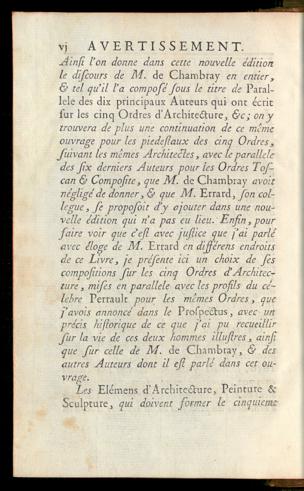 vj AVERTISSEMENT.
Ainſi l'on donne dans cette nouvelle édition
le diſcours de M. de Chambray en entier,
& tel qu'il l'a compoſé ſous le titre de Paral-
lele des dix principaux Auteurs qui ont écrit
ſur les cinq Ordres d'Architecture, &c; on y
trouvera de plus une continuation de ce même
ouvrage pour les piedeſtaux des cinq Ordres,
ſuivant les mêmes Architectes, avec le parallele
des ſix derniers Auteurs pour les Ordres Toſ-
can & Compoſite, que M. de Chambray avoit
négligé de donner, & que M. Errard, ſon col-
legue, ſe propoſoit d'y ajouter dans une nou-
velle édition qui n'a pas eu lieu. Enfin, pour
faire voir que c'eſt avec juſtice que j'ai parlé
avec éloge de M. Errard en différens endroits
de ce Livre, je préſente ici un choix de ſes
compoſitions ſur les cinq Ordres d'Architec-
ture, miſes en parallele avec les profils du cé-
lebre Perrault pour les mêmes Ordres, que
j'avois annoncé dans le Proſpectus, avec un
précis hiſtorique de ce que j'ai pu recueillir
ſur la vie de ces deux hommes illuſtres, ainſi
que ſur celle de M. de Chambray, & des
autres Auteurs dont il eſt parlé dans cet ou-
vrage.
Les Elémens d'Architecture, Peinture &
Sculpture, qui doivent former le cinquieme